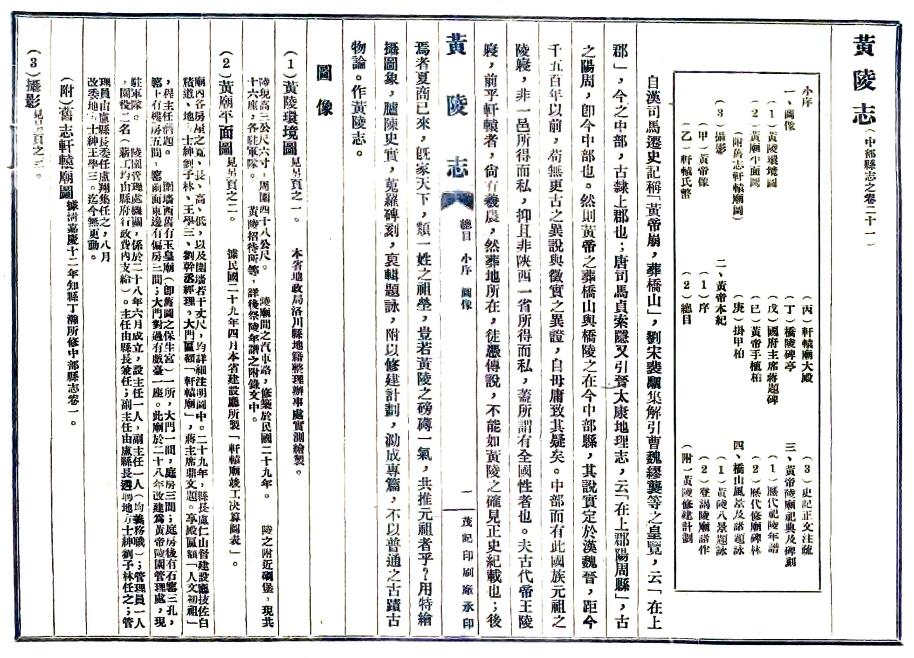 黃陵志(中部縣志之卷二十一)
小序
一、圖像
(1)黃陵環境圖
(2)黃廟平面圖
(附舊志軒轅廟圖)
(3)攝影
(甲)黃帝像
(乙)軒轅氏幣
(丙)軒轅廟大殿
(丁)橋陵碑亭
(戊)國府主席蔣題碑
(己)黃帝手植柏
(庚)掛甲柏
二、黃帝本紀
(1)序
(2)總目
(3)史記正文注疏
三、黃帝陵廟祀典及碑刻
(1)歷代祀陵年譜
(2)歷代修廟碑林
四、橋山風景及諸題詠
(1)黃陵八景題詠
(2)登謁陵廟諸作
(附)黃陵修建計劃
自漢司馬遷史記稱「黃帝崩,葬橋山」,劉宋裴駰集解引曹魏繆襲等之皇覽,云「在上
郡」,今之中部,古隸上郡也;唐司馬貞索隱又引晉太康地理志,云「在上郡陽周縣」,古
之陽周,卽今中部也。然則黃帝之葬橋山與橋陵之在今中部縣,其說實定於漢魏晉,距今
千五百年以前,苟無更古之異說與徵實之異證,自毋庸致其疑矣。中部而有此國族元祖之
陵寢,非一邑所得而私,抑且非陝西一省所得而私,蓋所謂有全國性者也。夫古代帝王陵
寢,前乎軒轅者,尙有羲農,然葬地所在,徒憑傳說,不能如黃陵之確見正史紀載也;後
黃陵志 總目 小序 圖像 一 茂記印刷廠承印
焉者夏商已來,旣家天下,類一姓之祖塋,豈若黃陵之磅礡一氣,共推元祖者乎?用特繪
攝圖象,臚陳史實,蒐羅碑刻,裒輯題詠,附以修建計劃,泐成專篇,不以普通之古蹟古
物論。作黃陵志。
圖像
(1)黃陵環境圖 見另頁之一。 本省地政局洛川縣地籍整理辦事處實測繪製。
陵現高三公尺六寸,周圍四十八公尺。 陵廟間之汽車路,修築於民國二十九年。 陵之附近碉堡,現共
十六座,各駐軍隊。 黃陵招待所等,詳後祭陵年譜之附錄文中。
(2)黃廟平面圖 見另頁之二。 據民國二十九年四月本省建設廳所製「軒轅廟竣工決算圖表」。
廟內各房屋之寬、長、高、低,以及圍墻若干丈尺,均詳細注明圖中。二十九年,縣長盧仁山督建設廳技佐白
積道、地方士紳劉子林、王學三、劉幹丞經理。大門匾額「軒轅廟」,蔣主席鼎文題。享殿匾額「人文初祖」
,程主任潛題。 圍墻西舊有玉皇廟(卽舊圖之保生宮)一所,大門一間,庭房三間;庭房後有石窰三孔,
窰上有樓房五間,窰前面東邊有偏房三間;大門對過有戲臺一座。此廟於二十八年改建爲黃帝陵園管理處,現
駐軍隊。 陵園管理處機關,係於二十八年六月成立,設主任一人,副主任一人(均義務職);管理員一人
,園役二名(薪工均由縣府行政費內支給)。主任由縣長兼任;副主任由盧縣長遴聘地方士紳劉子林任之;管
理員由盧縣長委任盧翔集任之,八月
改委地方士紳王學三。迄今無更動。
(附)舊志軒轅廟圖 據淸嘉慶十二年知縣丁瀚所修中部縣志卷一。
(3)攝影 見另頁之三。